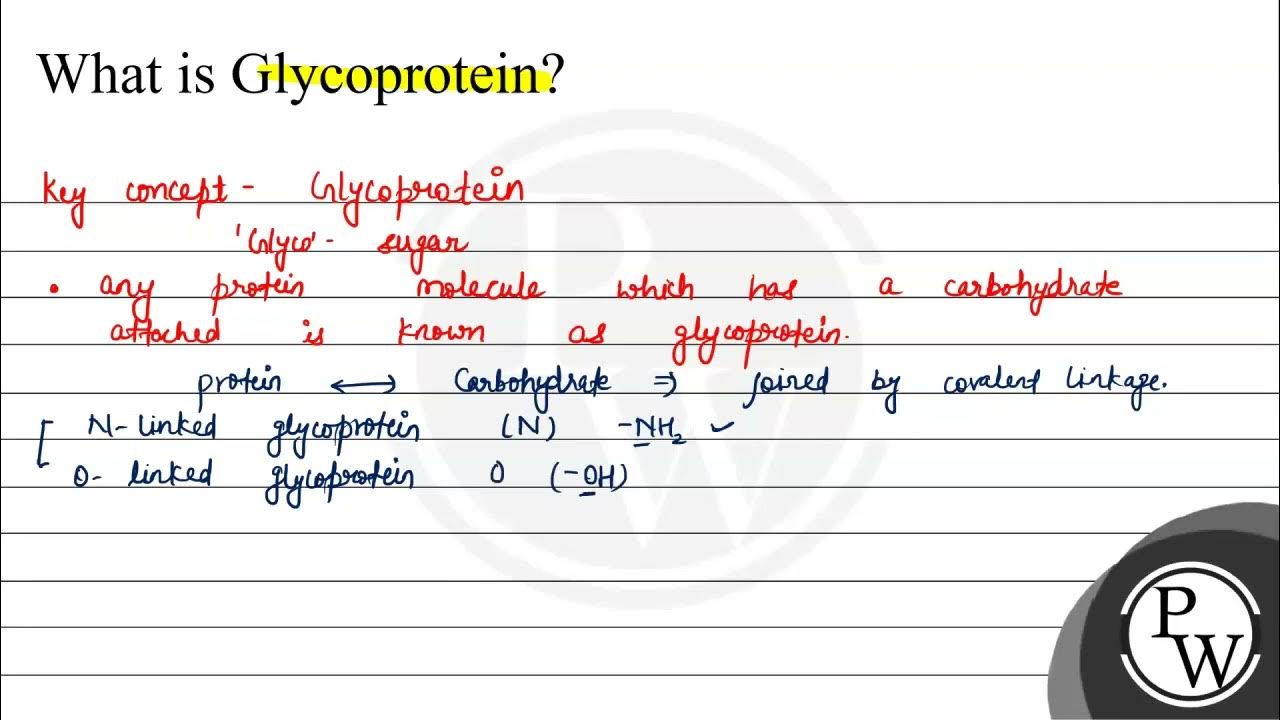 What is Glycoprotein?
Key concept - Glycoprotein
'Glyco' - sugar
• any protein molecule which has a carbohydrate
attached is known as glycoprotein.
protein ⟷ Carbohydrate ⇒ joined by covalent linkage.
N-linked glycoprotein (N) -NH₂ ✓
O-linked glycoprotein O (-OH)
PW
PW